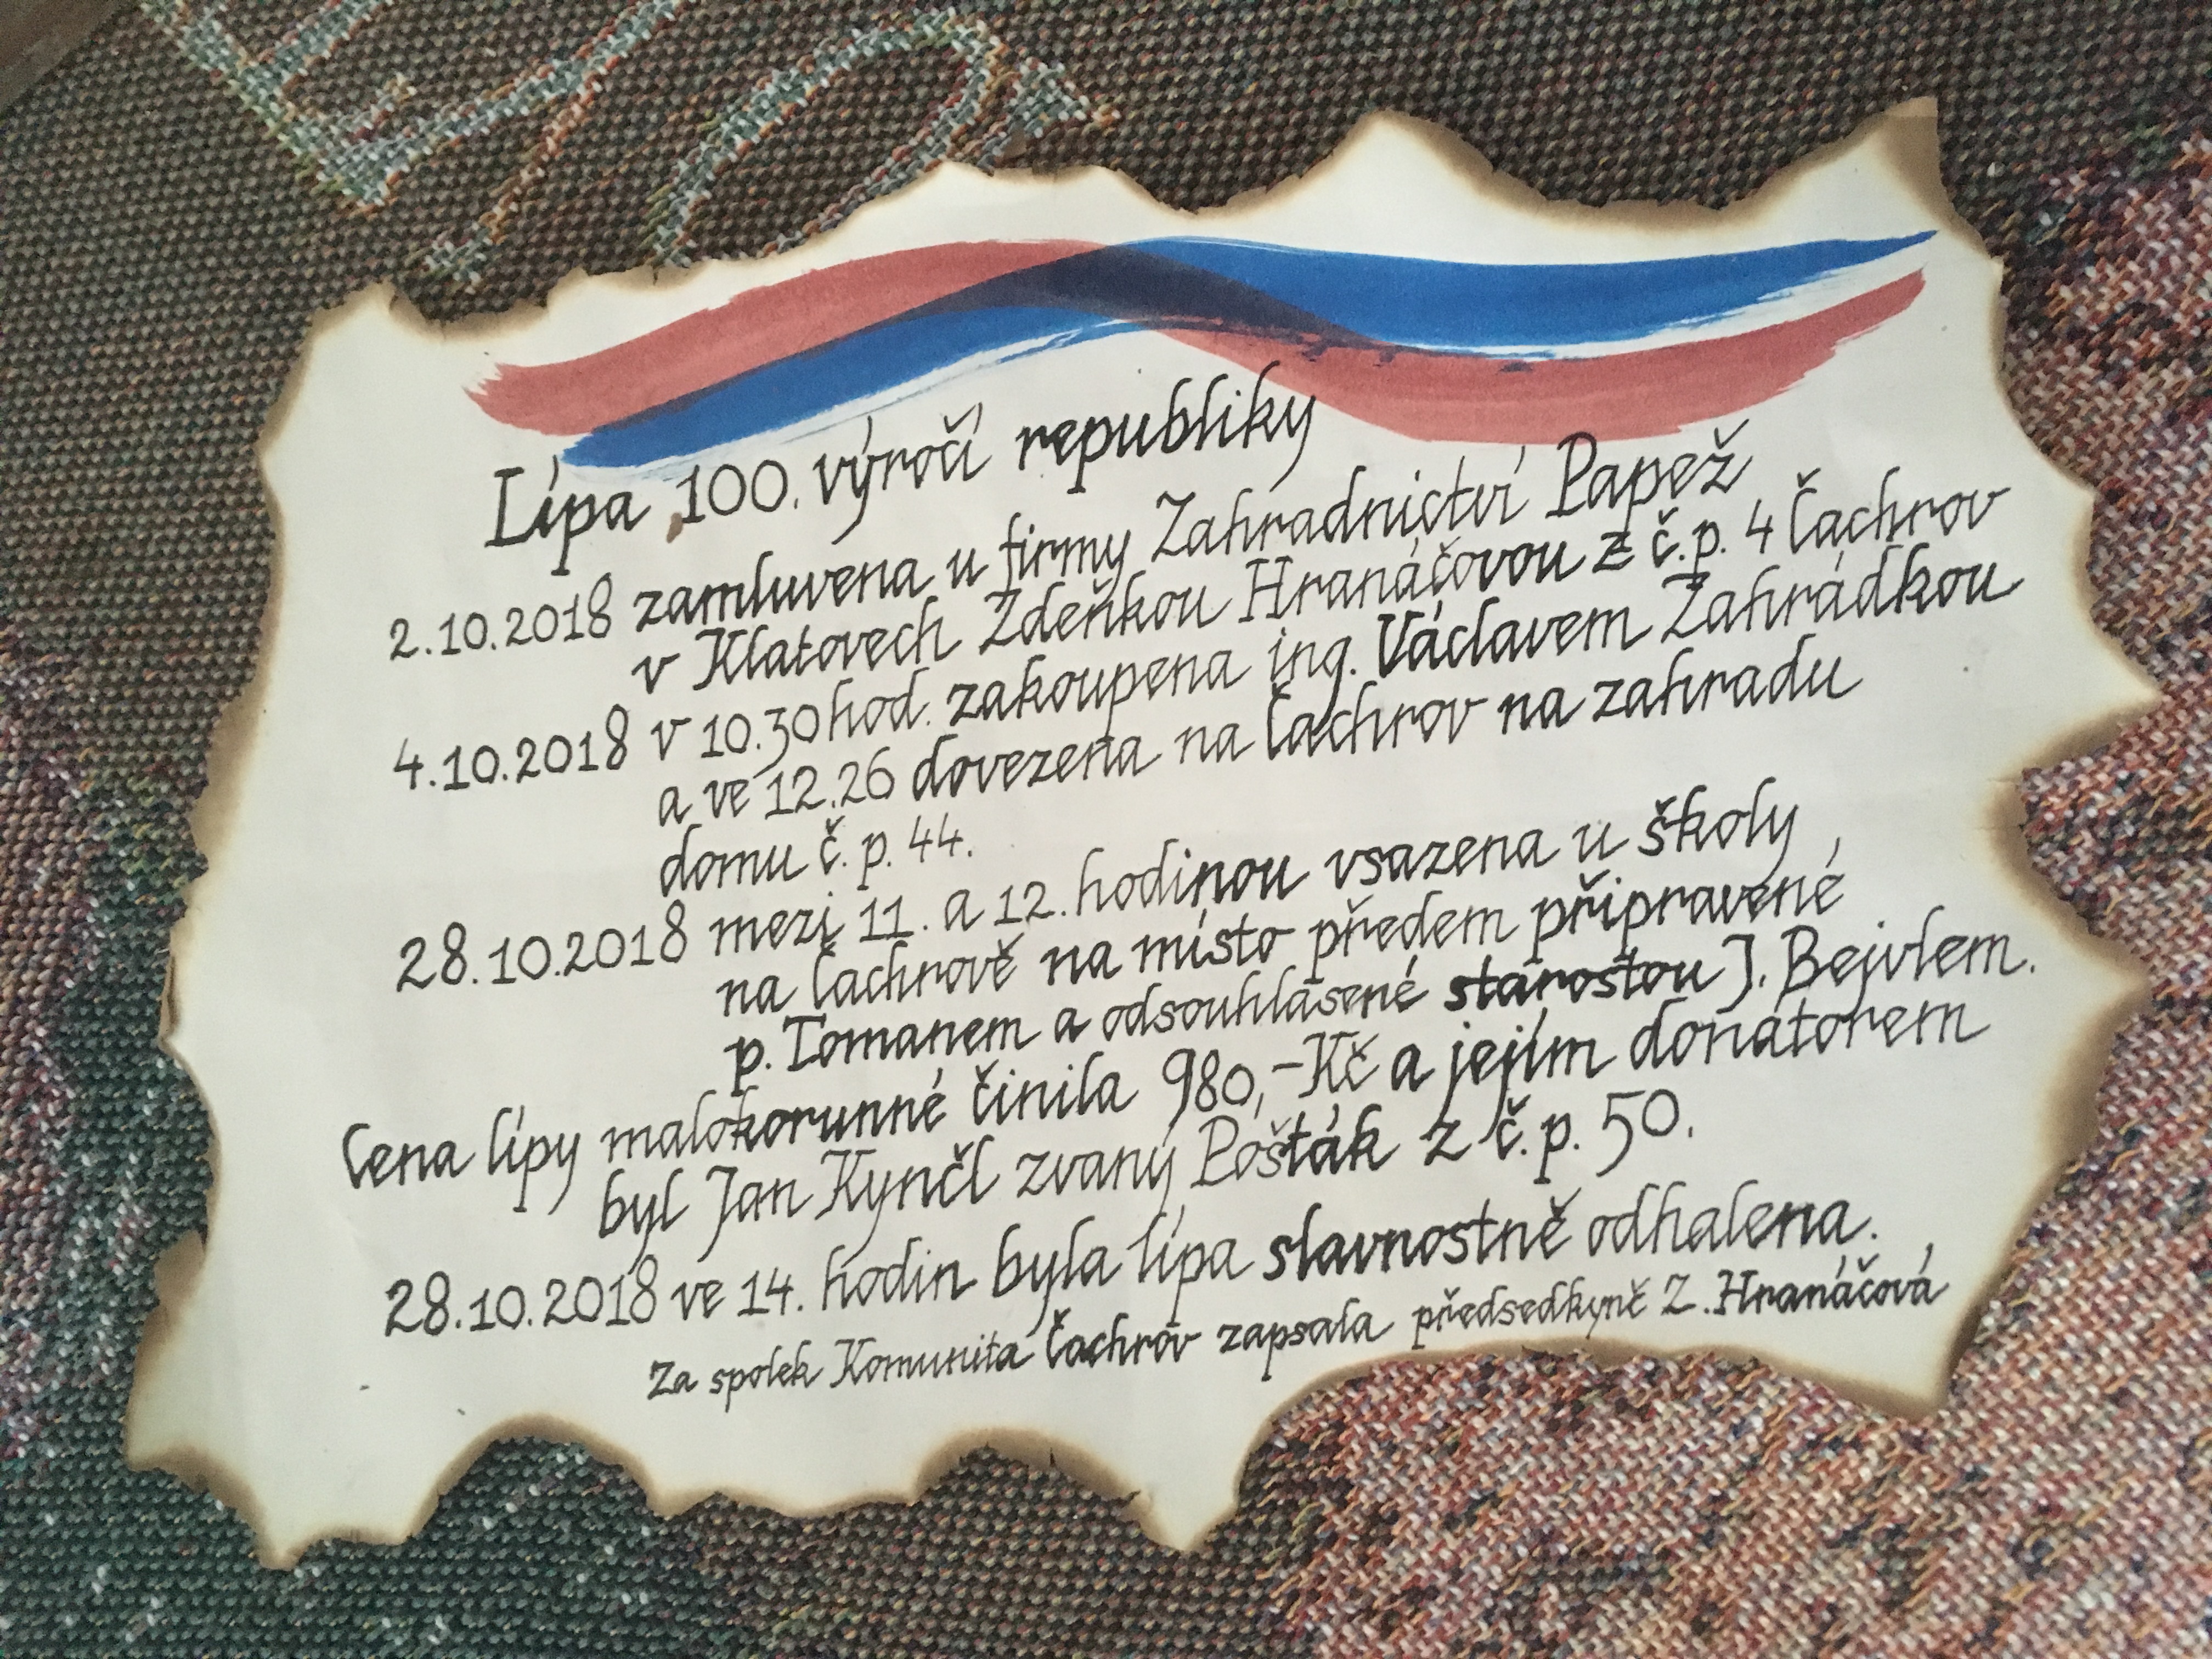 Lípa 100. výročí republiky
2.10.2018 zamluvena u firmy Zahradnictví Papež
v Klatovech Zdeňkou Hranáčovou z č.p. 4 Čachrov
4.10.2018 v 10.30 hod. zakoupena ing. Václavem Zahrádkou
a ve 12.26 dovezena na Čachrov na zahradu
domu č.p. 44.
28.10.2018 mezi 11. a 12. hodinou vsazena u školy
na Čachrově na místo předem připravené
p. Tomanem a odsouhlasené starostou J. Bejvlem.
Cena lípy malokorunné činila 980,-Kč a jejím donátorem
byl Jan Kynčl zvaný Pošťák z č.p. 50.
28.10.2018 ve 14. hodin byla lípa slavnostně odhalena.
Za spolek Komunita Čachrov zapsala předsedkyně Z. Hranáčová